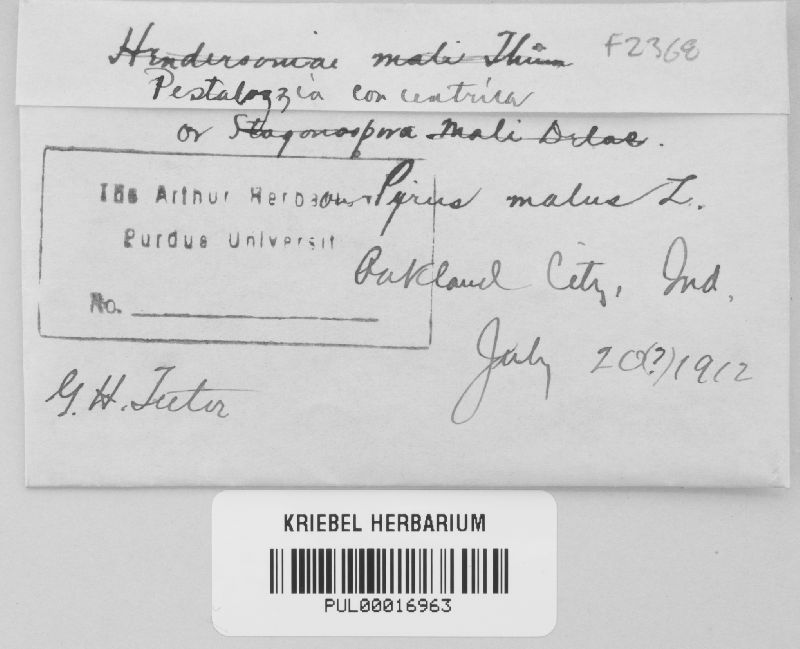 Hendersoniae mali Thüm F2368
Pestalozzia concentrica
or Stagonospora Mali Delac.
The Arthur Herbarium
on Pyrus malus L.
Purdue University
Oakland City, Ind.
No.
July 20(?) 1912
G. H. Teetor
KRIEBEL HERBARIUM
PUL00016963